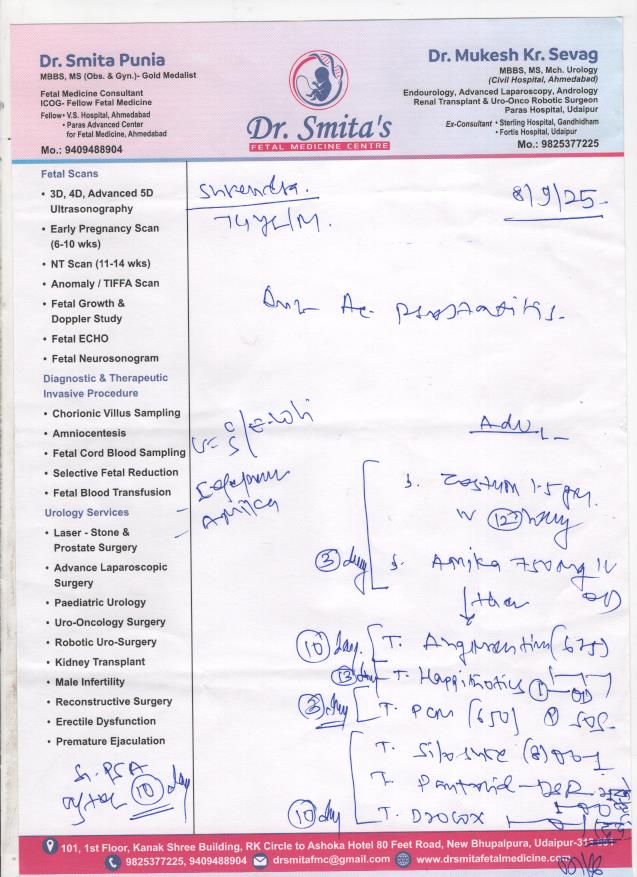 Dr. Smita Punia
MBBS, MS (Obs. & Gyn.)- Gold Medalist
Fetal Medicine Consultant
ICOG- Fellow Fetal Medicine
Fellow• V.S. Hospital, Ahmedabad
• Paras Advanced Center
for Fetal Medicine, Ahmedabad
Mo.: 9409488904
Dr. Smita's
FETAL MEDICINE CENTRE
Dr. Mukesh Kr. Sevag
MBBS, MS, Mch. Urology
(Civil Hospital, Ahmedabad)
Endourology, Advanced Laparoscopy, Andrology
Renal Transplant & Uro-Onco Robotic Surgeon
Paras Hospital, Udaipur
Ex-Consultant • Sterling Hospital, Gandhidham
• Fortis Hospital, Udaipur
Mo.: 9825377225
Fetal Scans
• 3D, 4D, Advanced 5D
Ultrasonography
• Early Pregnancy Scan
(6-10 wks)
• NT Scan (11-14 wks)
• Anomaly / TIFFA Scan
• Fetal Growth &
Doppler Study
• Fetal ECHO
• Fetal Neurosonogram
Diagnostic & Therapeutic
Invasive Procedure
• Chorionic Villus Sampling
• Amniocentesis
• Fetal Cord Blood Sampling
• Selective Fetal Reduction
• Fetal Blood Transfusion
Urology Services
• Laser - Stone &
Prostate Surgery
• Advance Laparoscopic
Surgery
• Paediatric Urology
• Uro-Oncology Surgery
• Robotic Uro-Surgery
• Kidney Transplant
• Male Infertility
• Reconstructive Surgery
• Erectile Dysfunction
• Premature Ejaculation
S. PSA
after 10 day
Surendra.
8/9/25
74 yr/M.
Ac. prostatitis.
C/S E-coli
Amika
Adv
1.5 gm.
12
3 day
Amika 750 mg IV
then OD
10 day T. (625)
T. OD
3 day T. PCM (650) SOS
T. (8) 0-0-1
T. DSR
10 day T.
101, 1st Floor, Kanak Shree Building, RK Circle to Ashoka Hotel 80 Feet Road, New Bhupalpura, Udaipur-313
9825377225, 9409488904 drsmitafmc@gmail.com www.drsmitafetalmedicine.com